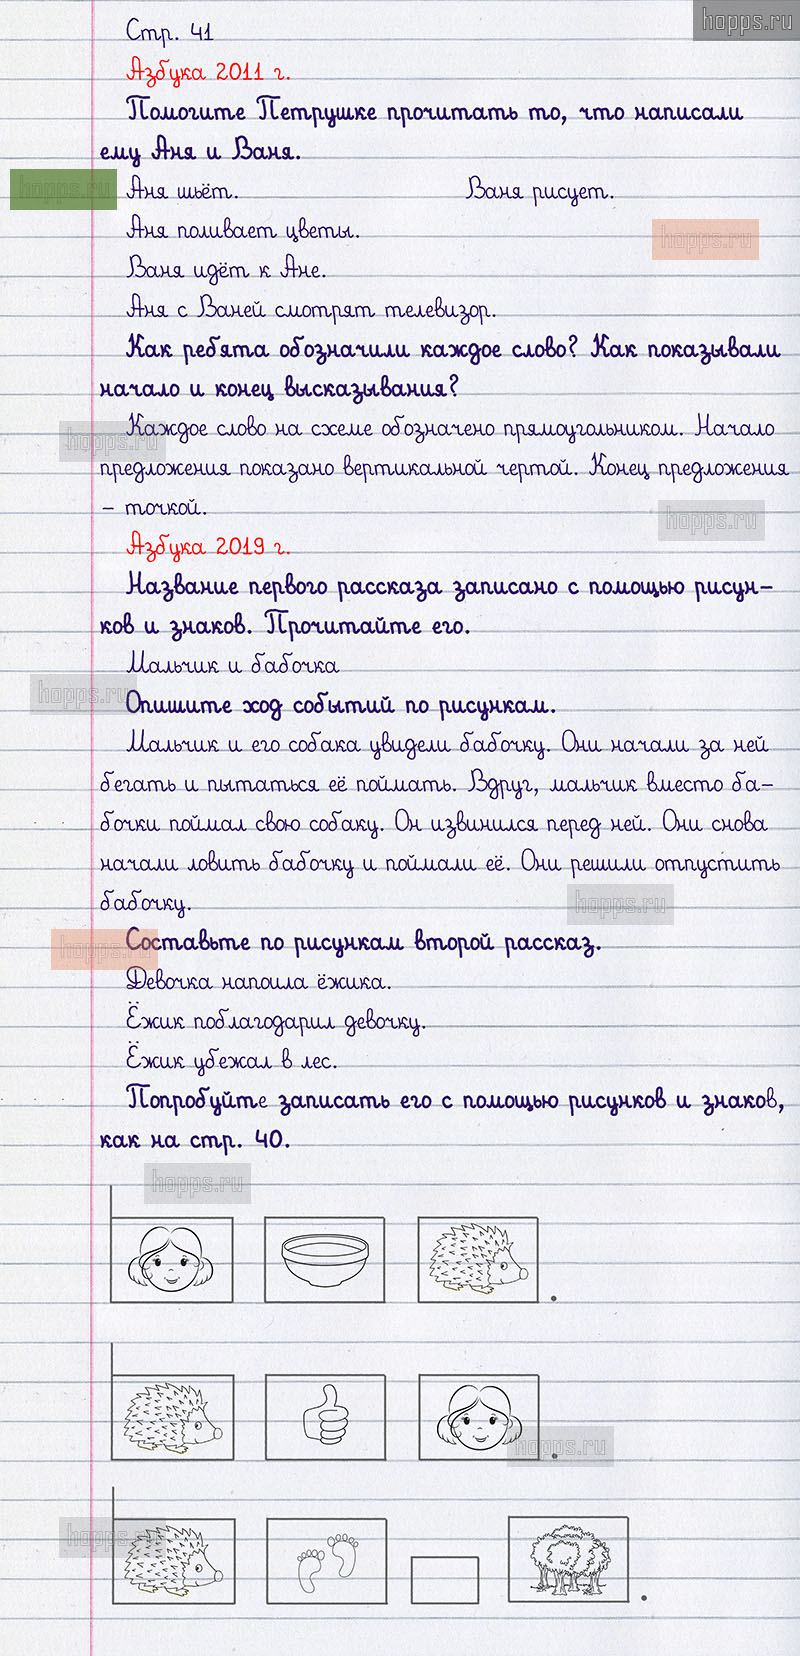 hopps.ru
Стр. 41
Азбука 2011 г.
Помогите Петрушке прочитать то, что написали
ему Аня и Ваня.
hopps.ru
Аня шьёт. Ваня рисует.
Аня поливает цветы.
hopps.ru
Ваня идёт к Ане.
Аня с Ваней смотрят телевизор.
Как ребята обозначили каждое слово? Как показывали
начало и конец высказывания?
Каждое слово на схеме обозначено прямоугольником. Начало
hopps.ru
предложения показано вертикальной чертой. Конец предложения
– точкой.
hopps.ru
Азбука 2019 г.
Название первого рассказа записано с помощью рисун-
ков и знаков. Прочитайте его.
Мальчик и бабочка
hopps.ru
Опишите ход событий по рисункам.
Мальчик и его собака увидели бабочку. Они начали за ней
бегать и пытаться её поймать. Вдруг, мальчик вместо ба-
бочки поймал свою собаку. Он извинился перед ней. Они снова
начали ловить бабочку и поймали её. Они решили отпустить
бабочку.
hopps.ru
Составьте по рисункам второй рассказ.
hopps.ru
Девочка напоила ёжика.
Ёжик поблагодарил девочку.
Ёжик убежал в лес.
Попробуйте записать его с помощью рисунков и знаков,
как на стр. 40.
hopps.ru
hopps.ru
hopps.ru